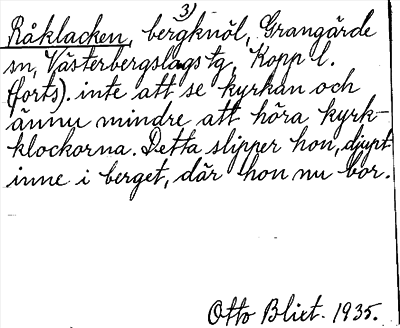 3)
Råklacken, bergknöl, Grangärde
sn, Västerbergslags tg, Kopp l.
(forts). inte att se kyrkan och
ännu mindre att höra kyrk-
klockorna. Detta slipper hon, djupt
inne i berget, där hon nu bor.
Otto Blixt. 1935.